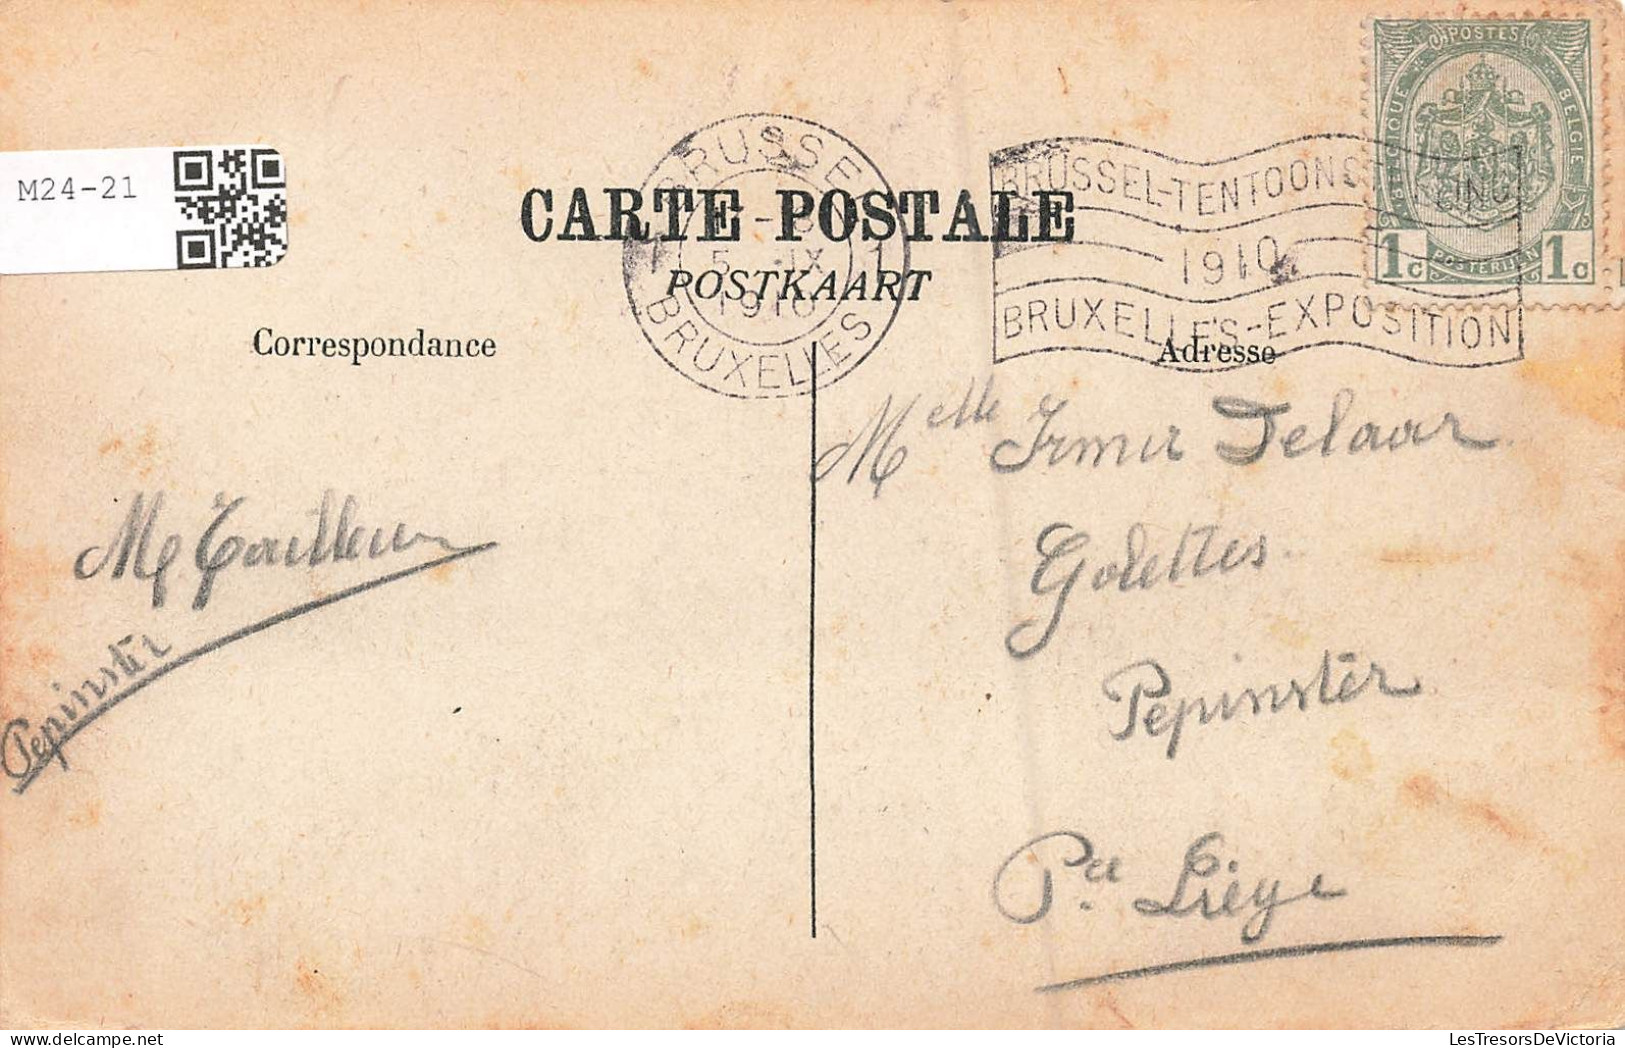 M24-21
CARTE POSTALE
POSTKAART
BRUSSEL 1
5 IX
1910
BRUXELLES
BRUSSEL-TENTOONSTELLING
1910
BRUXELLES-EXPOSITION
POSTES
BELGIQUE
BELGIE
POSTERIJEN
1c 1c
Correspondance
Adresse
Melle Irma Delaar
Golettes
Pepinster
Pce. Liège
M Tailleur
Pepinster
LesTresorsDeVictoria